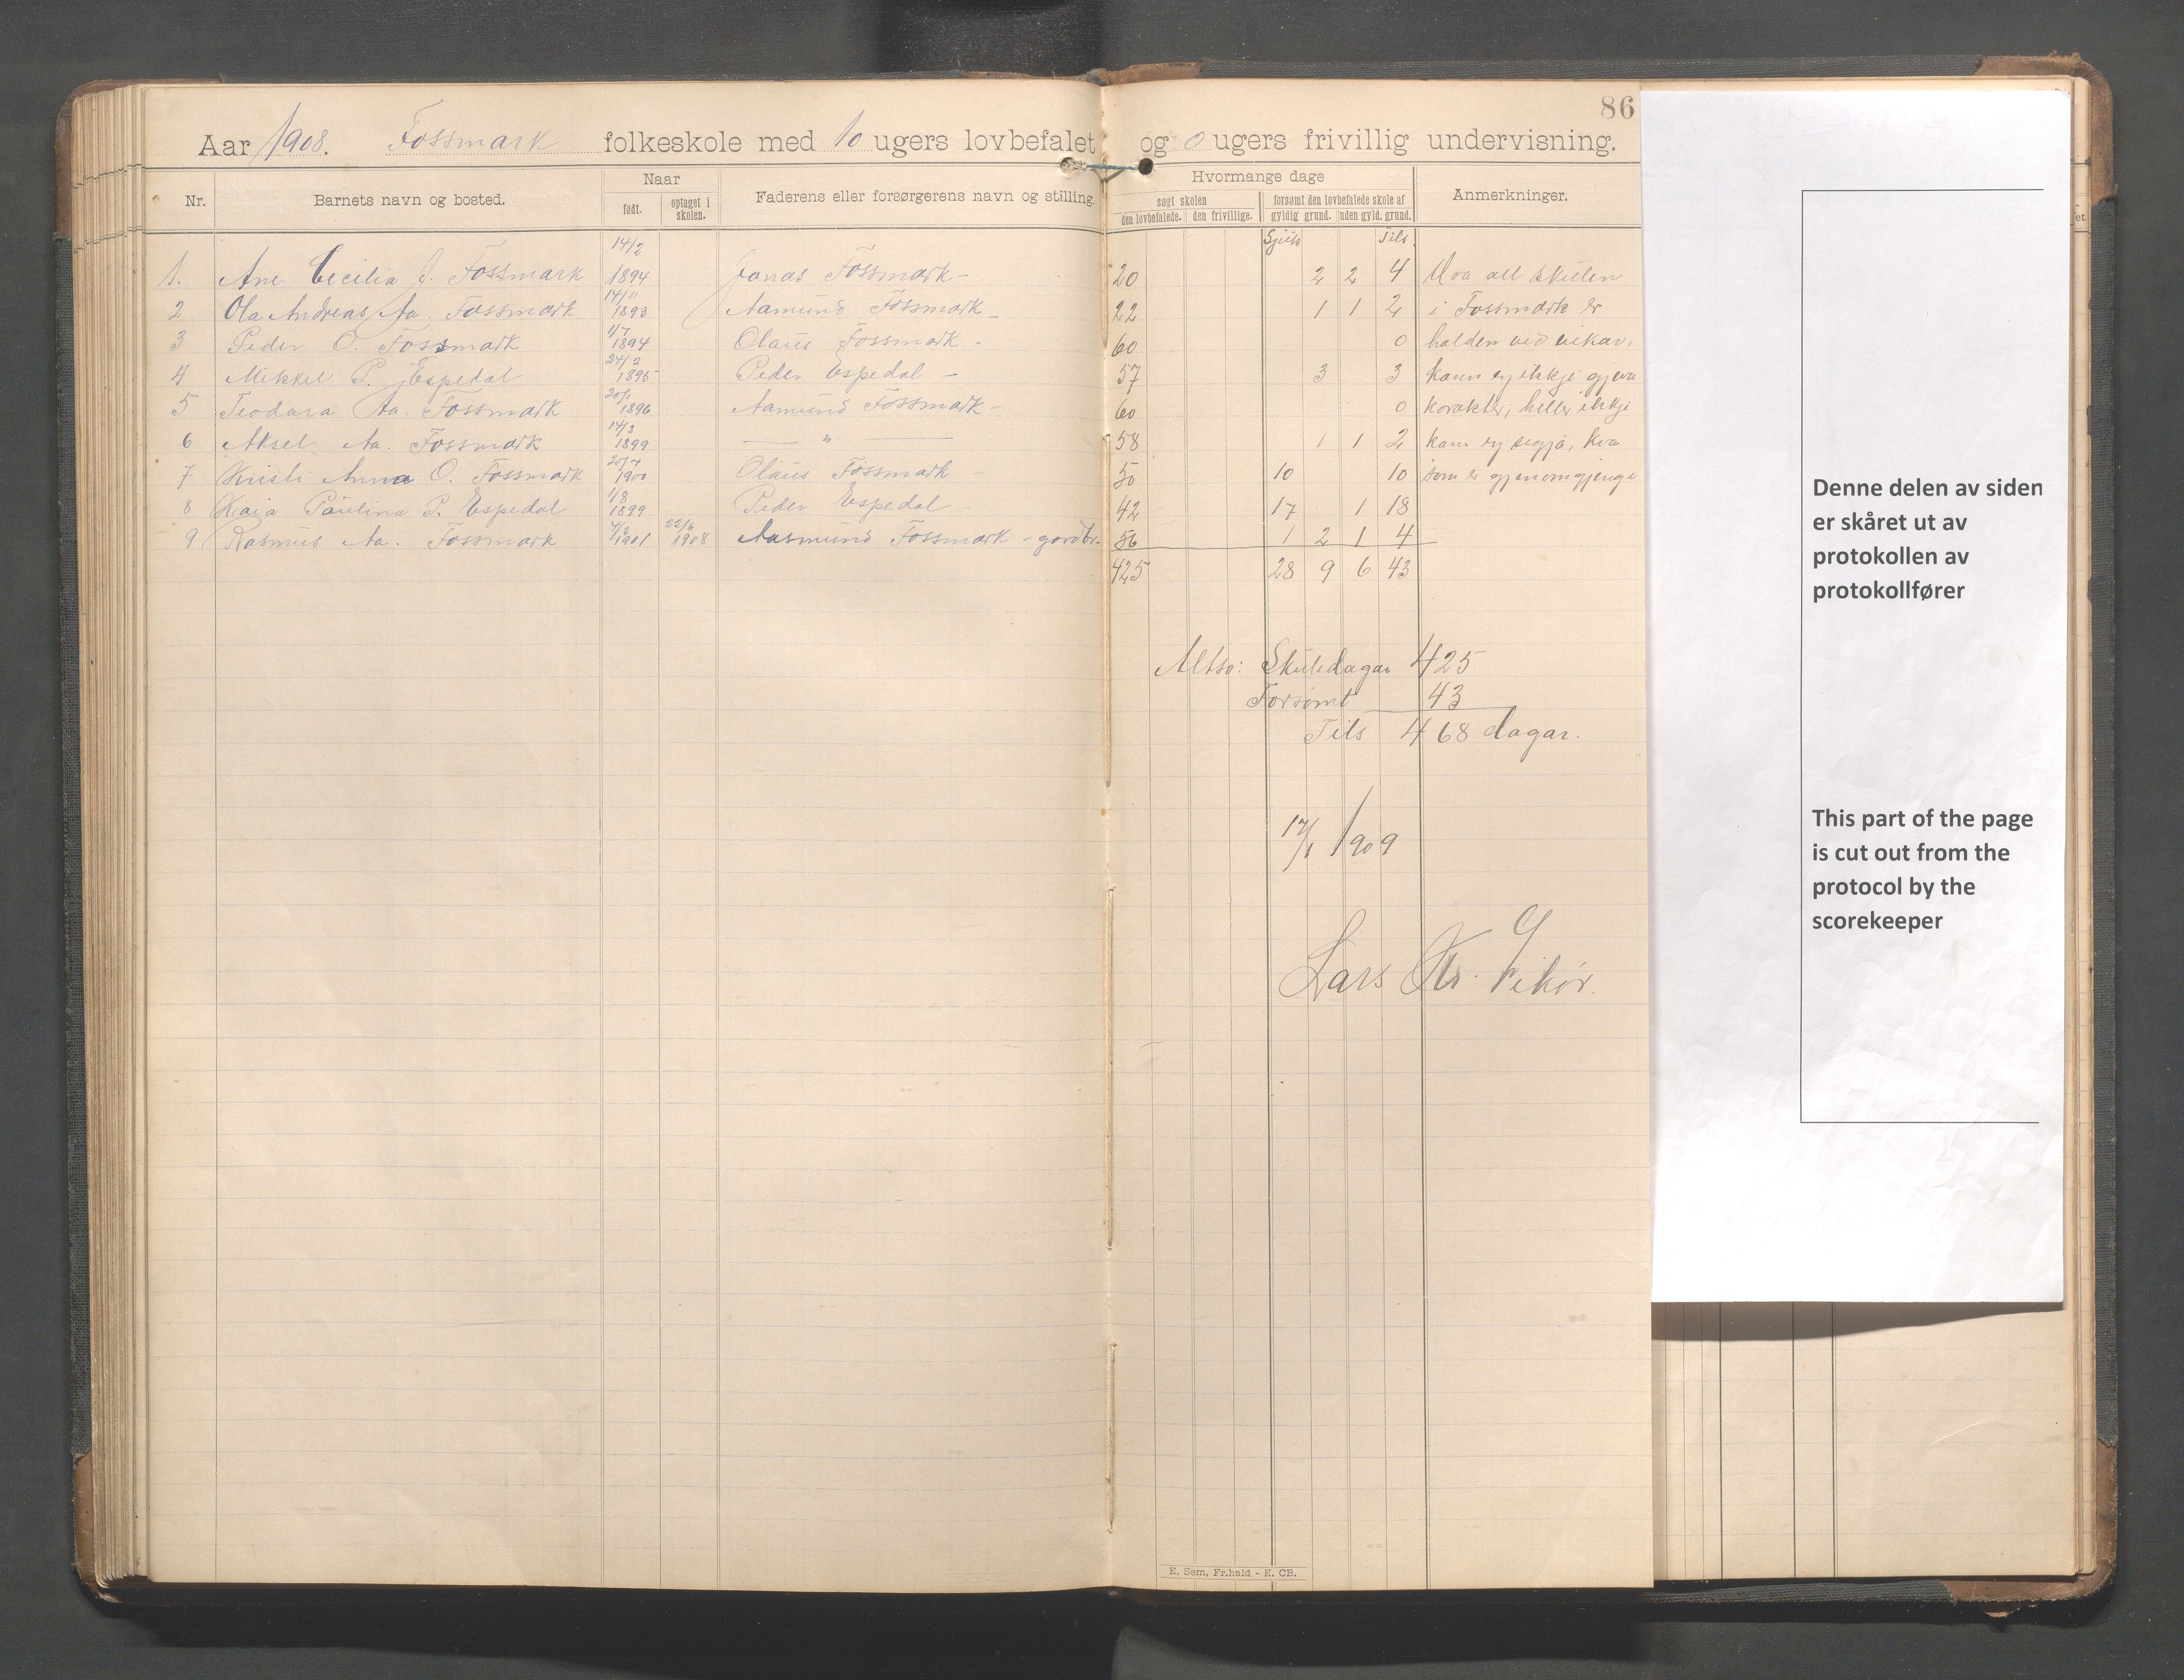 86
Aar 1908. Fossmark folkeskole med 10 ugers lovbefalet og 0 ugers frivillig undervisning.
Nr. Barnets navn og bosted. Naar født. optaget i skolen. Faderens eller forsørgerens navn og stilling. Hvormange dage søgt skolen den lovbefalede. den frivillige. forsømt den lovbefalede skole af gyldig grund. uden gyld. grund. Anmerkninger.
Sjuk Tils.
1. Ane Cecilia J. Fossmark 14/2 1894 Jonas Fossmark - 20 2 2 4 Uva all skulen
2 Ola Andreas Aa. Fossmark 14/11 1893 Aamund Fossmark - 22 1 1 2 i Fossmark er
3 Peder O. Fossmark 1/7 1894 Olaus Fossmark - 60 0 halden ved vikar,
4 Mikkel P. Espedal 24/2 1895 Peder Espedal - 57 3 3 kann eg ikkje gjeva
5 Teodora Aa. Fossmark 20/1 1896 Aamund Fossmark - 60 0 karakter; heller ikkje
6 Aksel Aa. Fossmark 14/3 1899 — " — 58 1 1 2 kann eg segja, kva
7 Kristi Anna O. Fossmark 20/7 1900 Olaus Fossmark - 50 10 10 som er gjenomgjenge
8 Kaia Paulina P. Espedal 1/8 1899 Peder Espedal 42 17 1 18
9 Rasmus Aa. Fossmark 4/2 1901 22/6 1908 Aasmund Fossmark - gardbr. 56 1 2 1 4
425 28 9 6 43
Altso: Skuledagar 425
Forsømt 43
Tils 468 dagar.
17/1 1909
Lars Kr. Vikør.
E. Sem, Fr.hald - E. CB.
Denne delen av siden
er skåret ut av
protokollen av
protokollfører
This part of the page
is cut out from the
protocol by the
scorekeeper
et